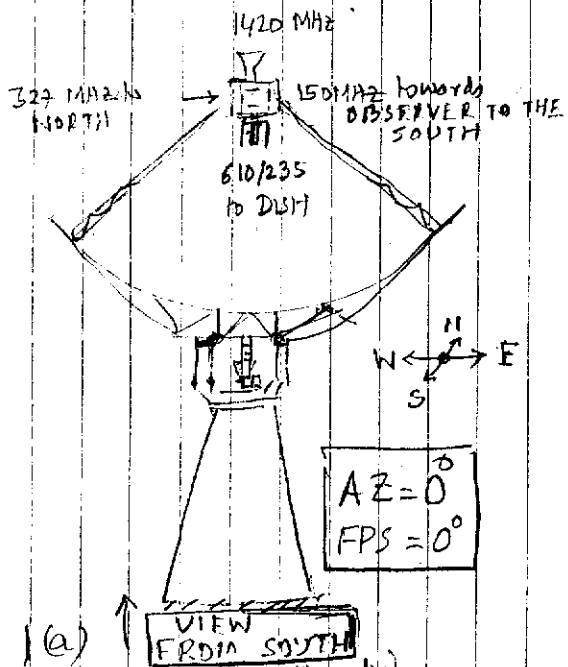 1420 MHz
327 MHz to
NORTH
150MHz towards
OBSERVER TO THE
SOUTH
610/235
to DISH
N
W E
S
AZ = 0°
FPS = 0°
1(a)
VIEW
FROM SOUTH